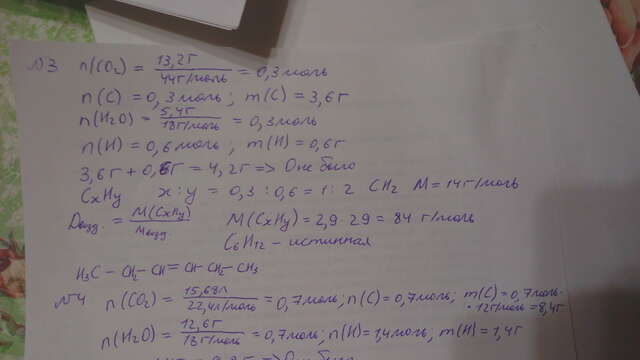 №3 n(CO₂) = 13,2г / 44г/моль = 0,3 моль
n(C) = 0,3 моль; m(C) = 3,6г
n(H₂O) = 5,4г / 18г/моль = 0,3 моль
n(H) = 0,6 моль; m(H) = 0,6г
3,6г + 0,6г = 4,2г => О не было
CxHy x : y = 0,3 : 0,6 = 1 : 2 CH₂ M = 14г/моль
Dвозд. = M(CxHy) / Mвозд. M(CxHy) = 2,9 · 29 = 84 г/моль
C₆H₁₂ - истинная
H₃C - CH₂ - CH = CH - CH₂ - CH₃
№4 n(CO₂) = 15,68л / 22,4л/моль = 0,7 моль; n(C) = 0,7 моль; m(C) = 0,7 моль ·
· 12г/моль = 8,4г
n(H₂O) = 12,6г / 18г/моль = 0,7 моль; n(H) = 1,4 моль, m(H) = 1,4г
=> О не было